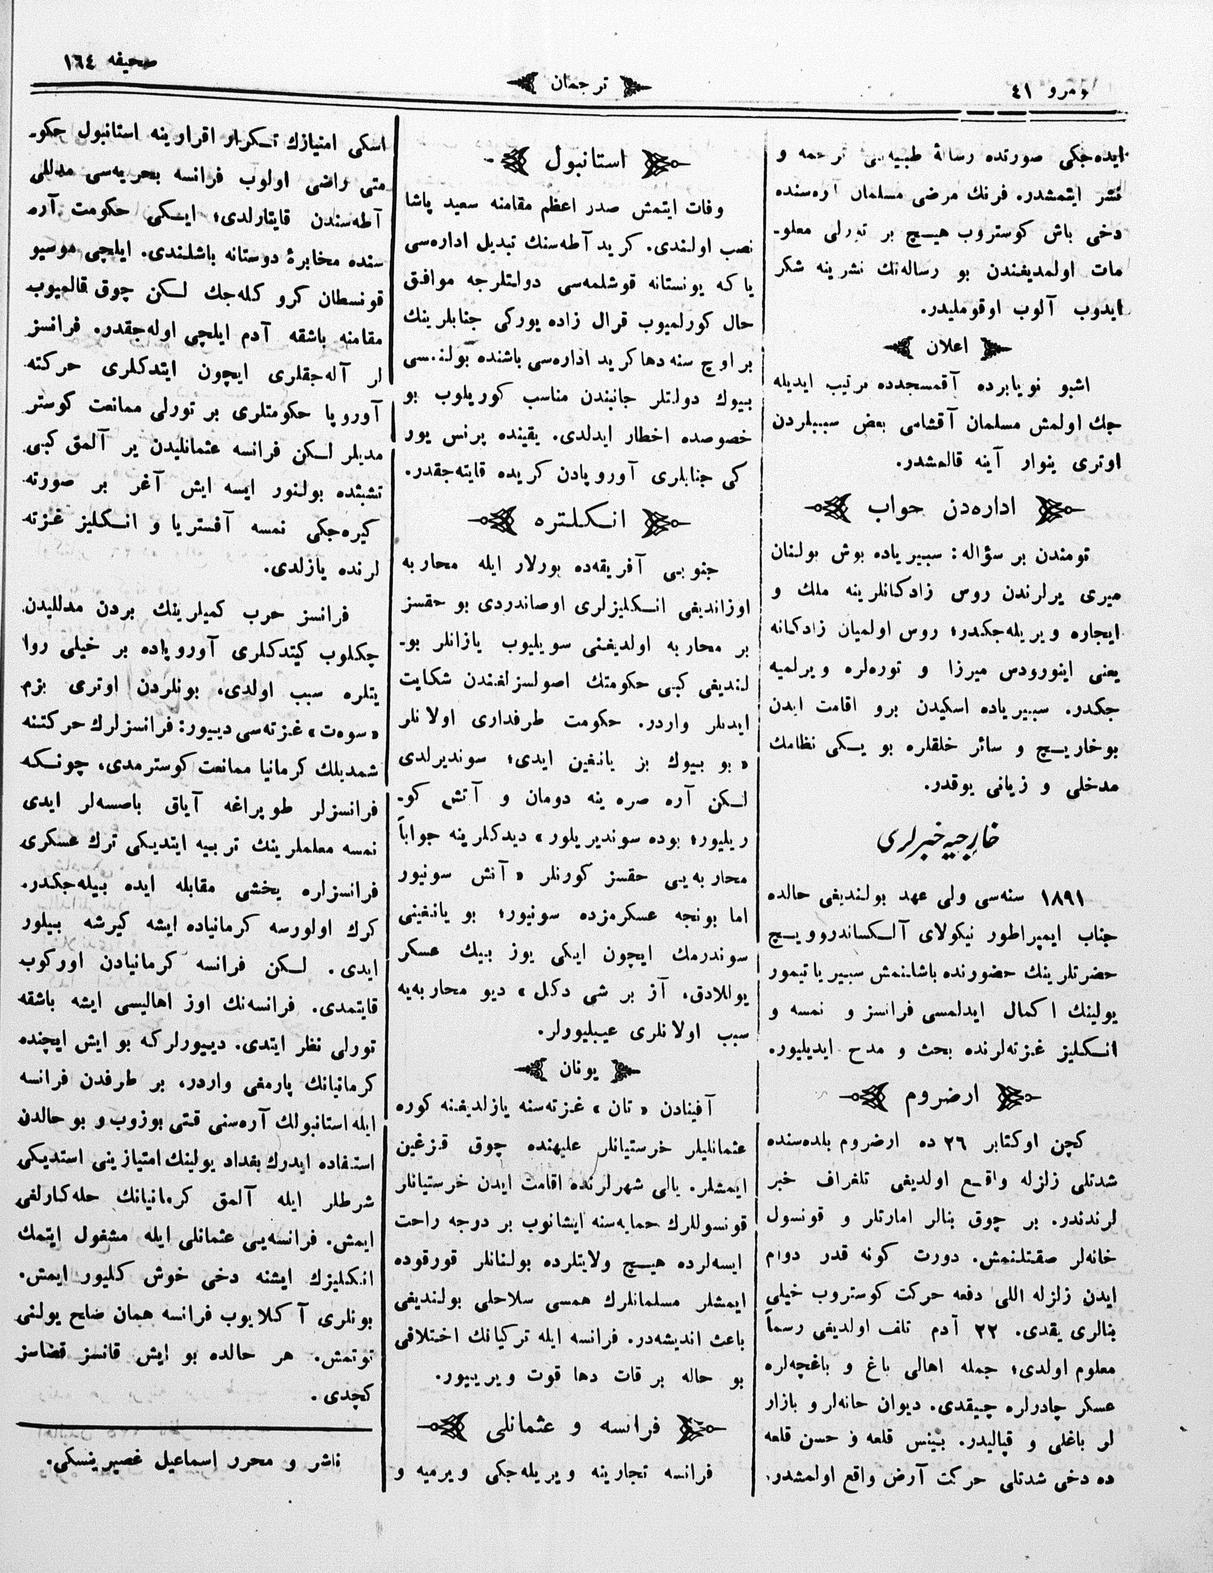 نومرو ٤١
ترجمان
صحیفه ١٦٤
ایده‌جكی صورتده رسالهٔ طبیه‌یی ترجمه و
نشر ایتمشدر. فرنك مرضی مسلمان آره‌سنده
دخی باش كوستروب هیـچ بر تورلی معلو-
مات اولمدیغندن بو رساله‌نك نشرینه شكر
ایدوب آلوب اوقوملیدر.
اعلان
اشبو نویابرده آقمسجدده مرتیب ایدیله
جك اولمش مسلمان آقشامی بعض سببلردن
اوتری ینوار آینه قالمشدر.
اداره‌دن جواب
تومندن بر سؤاله: سبیریاده بوش بولنان
میری یرلرندن روس زادكانلرینه ملك و
ایجاره ویریله‌جكدر؛ روس اولمیان زادكانه
یعنی اینورودس میرزا و توره‌لره ویرلمیه
جكدر. سبیریاده اسكیدن برو اقامت ایدن
بوخاریـچ و سائر خلقلره بو یـكی نظامك
مدخلی و زیانی یوقدر.
خارجیه خبرلری
١٨٩١ سنه‌سی ولی عهد بولندیغی حالده
جناب ایمپراطور نیكولای آلـكساندروویـچ
حضرتلرینك حضورنده باشلنمش سبیریا تیمور
یولینك اكمال ایدلمسی فرانسز و نمسه و
انـكلیز غزته‌لرنده بحث و مدح ایدیلیور.
ارضروم
كچن اوكتابر ٢٦ ده ارضروم بلده‌سنده
شدتلی زلزله واقـع اولدیغی تلغراف خبر
لرندندر. بر چوق بنالر امارتلر و قونسول
خانه‌لر صقتلنمش. دورت كونه قدر دوام
ایدن زلزله اللی دفعه حركت كوستروب خیلی
بنالری یقدی. ٢٢ آدم تلف اولدیغی رسماً
معلوم اولدی؛ جمله اهالی باغ و باغچه‌لره
عسكر چادرلره چیقدی. دیوان خانه‌لر و بازار
لر باغلی و قپالیدر. بینس قلعه و حسن قلعه
ده دخی شدتلی حركت آرض واقع اولمشدر.
استانبول
وفات ایتمش صدر اعظم مقامنه سعید پاشا
نصب اولندی. كرید آطه‌سنك تبدیل اداره‌سی
یا كه یونستانه قوشلمه‌سی دولتلرجه موافق
حال كورلمیوب قرال زاده یوركی جنابلرینك
بر اوچ سنه دها كرید اداره‌سی باشنده بولنمسی
بیوك دولتلر جانبندن مناسب كوریلوب بو
خصوصده اخطار ایدلدی. یقینده پرنس یور
كی جنابلری آوروپادن كریده قایته‌جقدر.
انـكلتره
جنوبی آفریقه‌ده بورلار ایله محاربه
اوزاندیغی انـكلیزلری اوصاندردی بو حقسز
بر محاربه اولدیغنی سویلیوب یازانلر بو-
لندیغی كبی حكومتك اصولسزلغندن شكایت
ایدنلر واردر. حكومت طرفداری اولانلر
« بو بیوك بز یانغین ایدی؛ سوندیرلدی
لـكن آره صره ینه دومان و آتش كو-
ریلیور؛ بوده سوندیریلور» دیدكلرینه جواباً
محاربه‌یی حقسز كورنلر « آتش سونیور
اما بونجه عسكرمزده سونیور؛ بو یانغینی
سوندرمك ایچون ایكی یوز بیك عسكر
یوللادق، آز بر شی دكل» دیو محاربه‌یه
سبب اولانلری عیبلیورلر.
یونان
آفینادن « تان » غزته‌سنه یازلدیغنه كوره
عثمانلیلر خرستیانلر علیهنده چوق قزغین
ایمشلر. یالی شهرلرنده اقامت ایدن خرستیانلر
قونسوللرك حمایه‌سنه اینشانوب بر درجه راحت
ایسه‌لرده هیـچ ولایتلرده بولنانلر قورقوده
ایمشلر مسلمانلرك همسی سلاحلی بولندیغی
باعث اندیشه‌در. فرانسه ایله تركیانك اختلافی
بو حاله بر قات دها قوت ویرییور.
فرانسه و عثمانلی
فرانسه تجارینه ویریله‌جكی ویرمیه و
اسكی امتیازك تـكرار اقرارینه استانبول حكو-
متی راضی اولوب فرانسه بحریه‌سی مدللی
آطه‌سندن قایتارلدی؛ ایـكی حكومت آره
سنده مخابرهٔ دوستانه باشلندی. ایلچی موسیو
قونسطان كرو كله‌جك لـكن چوق قالمیوب
مقامنه باشقه آدم ایلچی اوله‌جقدر. فرانسز
لر آله‌جقلری ایچون ایتدكلری حركته
آوروپا حكومتلری بر تورلی ممانعت كوستر
مدیلر لـكن فرانسه عثمانلیدن یر آلمق كبی
تشبثده بولنور ایسه ایش آغر بر صورته
كیره‌جكی نمسه آفستریا و انـكلیز غزته
لرنده یازلدی.
فرانسز حرب كمیلرینك بردن مدللیدن
چكلوب كیتدكلری آوروپاده بر خیلی روا
یتلره سبب اولدی، بونلردن اوتری بزم
«سوه‌ت» غزته‌سی دیییور: فرانسزلرك حركتنه
شمدیلك كرمانیا ممانعت كوسترمدی، چونـكه
فرانسزلر طوپراغه آیاق باصسه‌لر ایدی
نمسه معلملرینك تربیه ایتدیكی ترك عسكری
فرانسزلره یخشی مقابله ایده بیله‌جكدر.
كرك اولورسه كرمانیاده ایشه كیرشه بیلور
ایدی. لـكن فرانسه كرمانیادن اوركوب
قایتمدی. فرانسه‌نك اوز اهالیسی ایشه باشقه
تورلی نظر ایتدی. دیییورلر كه بو ایش ایچنده
كرمانیانك پارمغی واردر. بر طرفدن فرانسه
ایله استانبولك آره‌سنی قتی بوزوب و بو حالدن
استفاده ایدرك بغداد یولینك امتیازینی استدیكی
شرطلر ایله آلمق كرمانیانك حله‌كارلغی
ایمش. فرانسه‌یی عثمانلی ایله مشغول ایتمك
انكلیزك ایشنه دخی خوش كلیور ایمش.
بونلری آكلایوب فرانسه همان صلح یولنی
توتمش. هر حالده بو ایش قانسز قضاسز
كچدی.
ناشر و محرر اسماعیل غصپرینسكی.